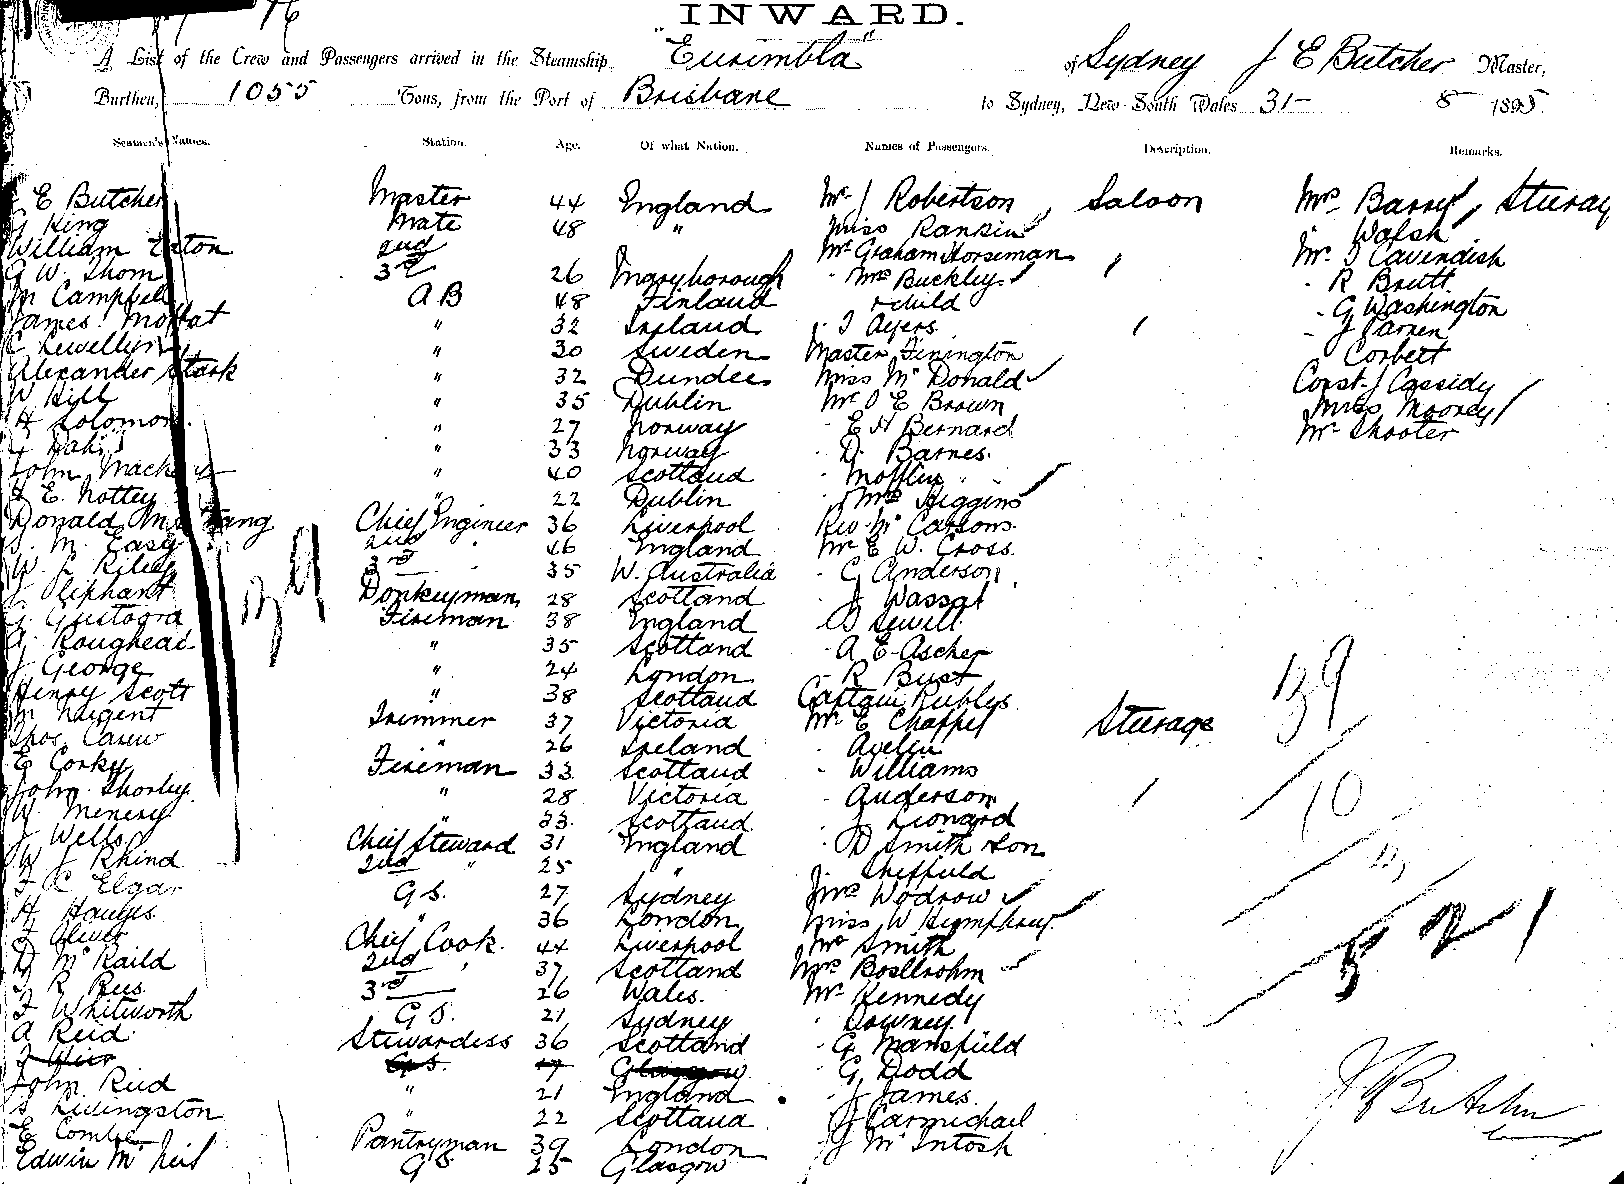 INWARD.
A List of the Crew and Passengers arrived in the Steamship "Eurimbla" of Sydney J E Butcher Master,
Burthen, 1055 Tons, from the Port of Brisbane to Sydney, New South Wales 31- 8 1895
Seamen's Names. Station. Age. Of what Nation. Names of Passengers. Description. Remarks.
E Butcher Master 44 England Mr J Robertson Saloon Mrs Barry, Sturag
G King Mate 48 " Miss Rankin Walsh
William Eaton 2nd Mr Graham Horseman Mr J Cavendish
G W. Thom 3rd 26 Maryborough Mrs Buckley R Brett
M Campbell A B 48 Finland & child G Washington
James Moffat " 32 Ireland J Ayers J Parren
C Lewellyn " 30 Sweden Master Finington Corbett
Alexander Stark " 32 Dundee Miss Mc Donald Const. J Cassidy
W Hill " 35 Dublin Mr O E Brown Miss Mooney
H Solomon " 27 Norway E H Bernard Mr Shooter
Dahl " 33 Norway D. Barnes.
John Mack " 40 Scotland Mofflin
E. Nottey " 22 Dublin Mrs Higgins
Donald Chief Engineer 36 Liverpool Rev. Mc Carsons.
M. Easy 2nd " 46 England Mr E W. Cross.
W. J. Riley 3rd 35 W. Australia C Anderson
J Oliphant Donkeyman 28 Scotland J Wassat
Fireman 38 England D Sewell
A. Roughead " 35 Scotland A E Ascher
J George " 24 London R Bust
Henry Scott " 38 Scotland Captain Rubles
M Nugent Trimmer 37 Victoria Mr E Chappel Sturage
Thos. Carew " 26 Ireland Avelin
E Corky Fireman 33 Scotland Williams
John Shorley " 28 Victoria Anderson
W. Menery " 33 Scotland J Lionard
J Wells Chief Steward 31 England D Smith & son
W J Rhind 2nd " 25 " Sheffield
F C Elgar G S. 27 Sydney Mrs Wodrow
H Hayes " 36 London Miss W Humphrey
F Oliver Chief Cook 44 Liverpool Mr Smith
D Mc Raild 2nd " 37 Scotland Mrs Bosllrohm
J R Rees 3rd 26 Wales Mr Kennedy
F Whitworth G S. 21 Sydney Downey
A Reid Stewardess 36 Scotland G Mansfield
J Weir G.S. 17 Glasgow G Dodd
John Reid " 21 England J James
S Livingston " 22 Scotland J Carmichael
E Combe Pantryman 39 London J Mc Intosh
Edwin Mc Neil G S. 25 Glasgow
139
10
521
J E Butcher